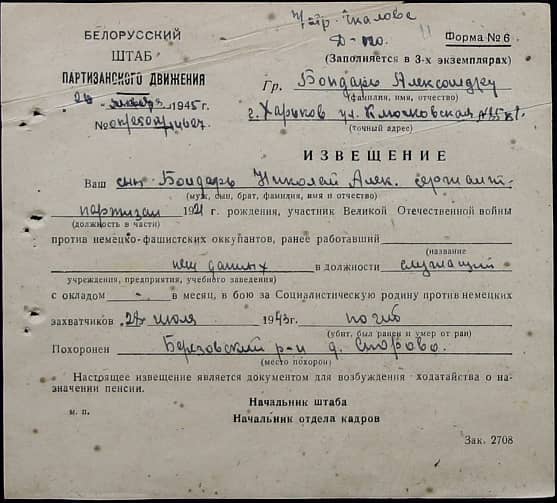 Форма № 6
(Заполняется в 3-х экземплярах)
БЕЛОРУССКИЙ
ШТАБ
ПАРТИЗАНСКОГО ДВИЖЕНИЯ
января 1945 г.
№
Гр. Бондарь Александру
(фамилия, имя, отчество)
г. Харьков ул. Клочковская
(точный адрес)
ИЗВЕЩЕНИЕ
Ваш сын Бондарь Николай Алек. сержант
(муж, сын, брат, фамилия, имя и отчество)
партизан 1921 г. рождения, участник Великой Отечественной войны
(должность в части)
против немецко-фашистских оккупантов, ранее работавший
(название
нет данных в должности служащий
учреждения, предприятия, учебного заведения)
с окладом - в месяц, в бою за Социалистическую родину против немецких
захватчиков 28 июля 1943 г. погиб
(убит, был ранен и умер от ран)
Похоронен Березовский р-н д. Спорово.
(место похорон)
Настоящее извещение является документом для возбуждения ходатайства о на-
значении пенсии.
Начальник штаба
м. п.
Начальник отдела кадров
Зак. 2708